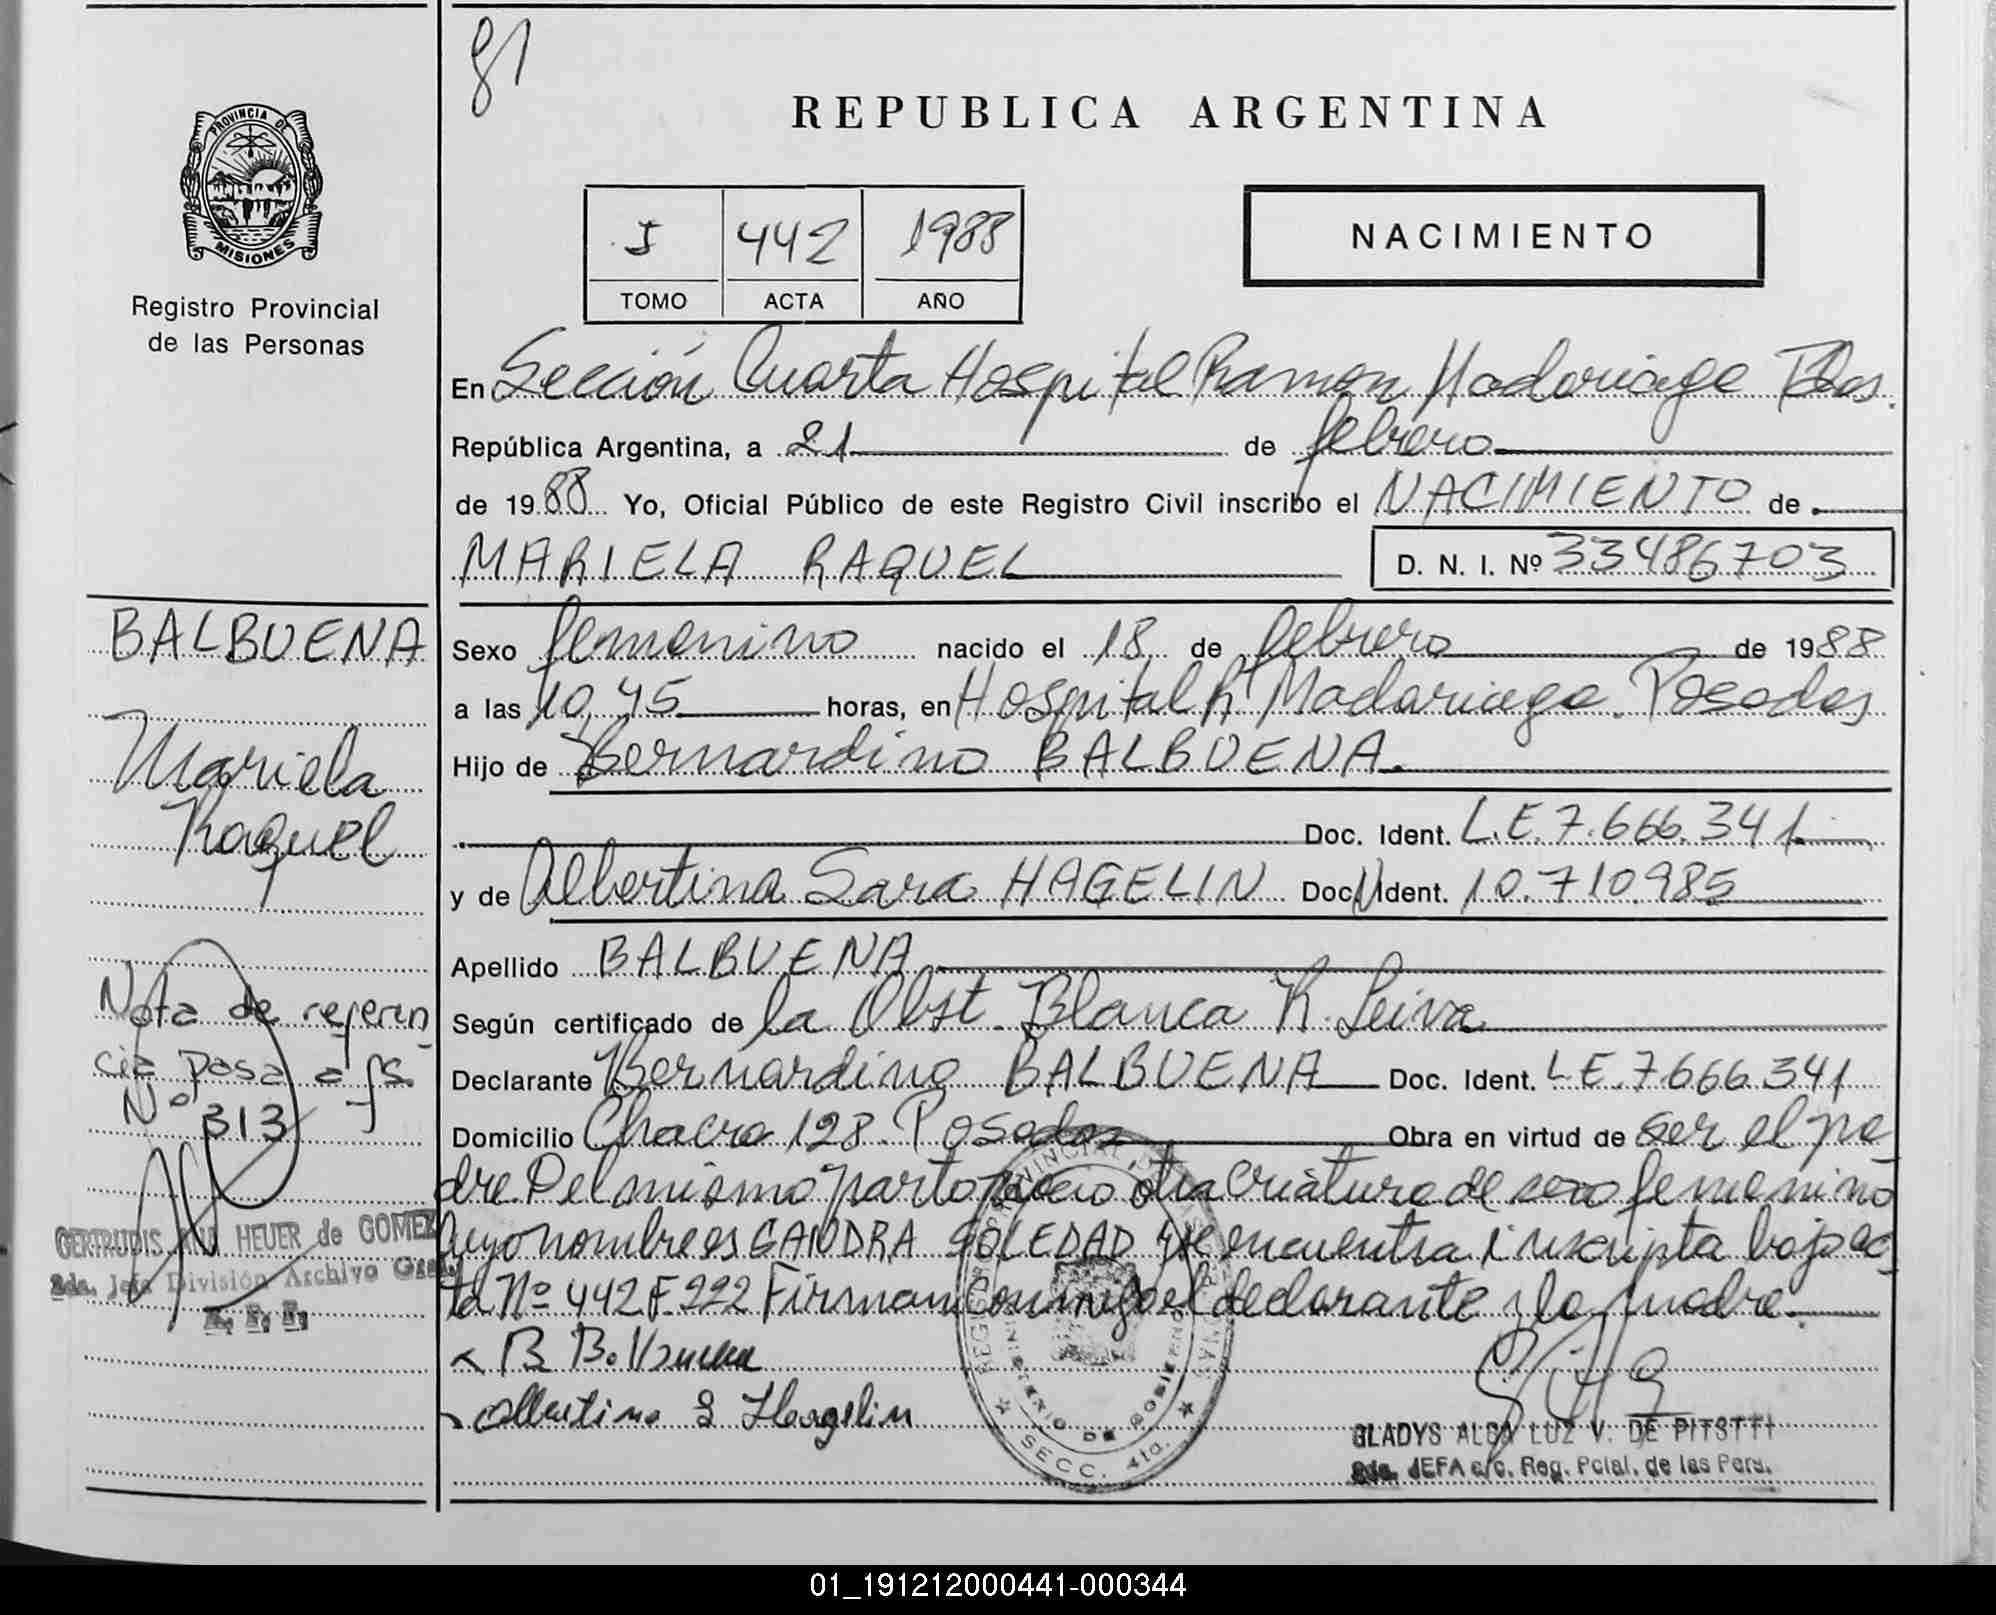 81
PROVINCIA DE
MISIONES
Registro Provincial
de las Personas
REPUBLICA ARGENTINA
I 442 1988
TOMO ACTA AÑO
NACIMIENTO
En Sección Cuarta Hospital Ramon Madariaga Pdas.
República Argentina, a 21 de febrero
de 1988 Yo, Oficial Público de este Registro Civil inscribo el NACIMIENTO de
MARIELA RAQUEL D. N. I. Nº 33486703
BALBUENA
Mariela
Raquel
Sexo femenino nacido el 18 de febrero de 1988
a las 10,45 horas, en Hospital R Madariaga. Posadas
Hijo de Bernardino BALBUENA.
Doc. Ident. L.E. 7.666.341
y de Albertina Sara HAGELIN Doc. Ident. 10.710985
Apellido BALBUENA
Según certificado de la Obst. Blanca R. Leiva
Declarante Bernardino BALBUENA Doc. Ident. LE. 7666341
Domicilio Chacra 128. Posadas Obra en virtud de ser el pa
dre Del mismo parto nacio otra criatura de sexo femenino
cuyo nombre es SOLEDAD y se encuentra inscripta bajo ac
ta Nº 442 F 222 Firman conmigo el declarante y la madre.
Nota de referen
cia pasa a fs.
Nº 313
GERTRUDIS HEUER de GOMEZ
2da. Jefa División Archivo Gral.
R. P. P.
Albertina S Hagelin
REGISTRO PROVINCIAL DE LAS PERSONAS
MINISTERIO DE GOBIERNO
SECC. 4ta.
GLADYS ALBA LUZ V. DE
2da. JEFA a/c. Reg. Pcial. de las Pers.
01_191212000441-000344